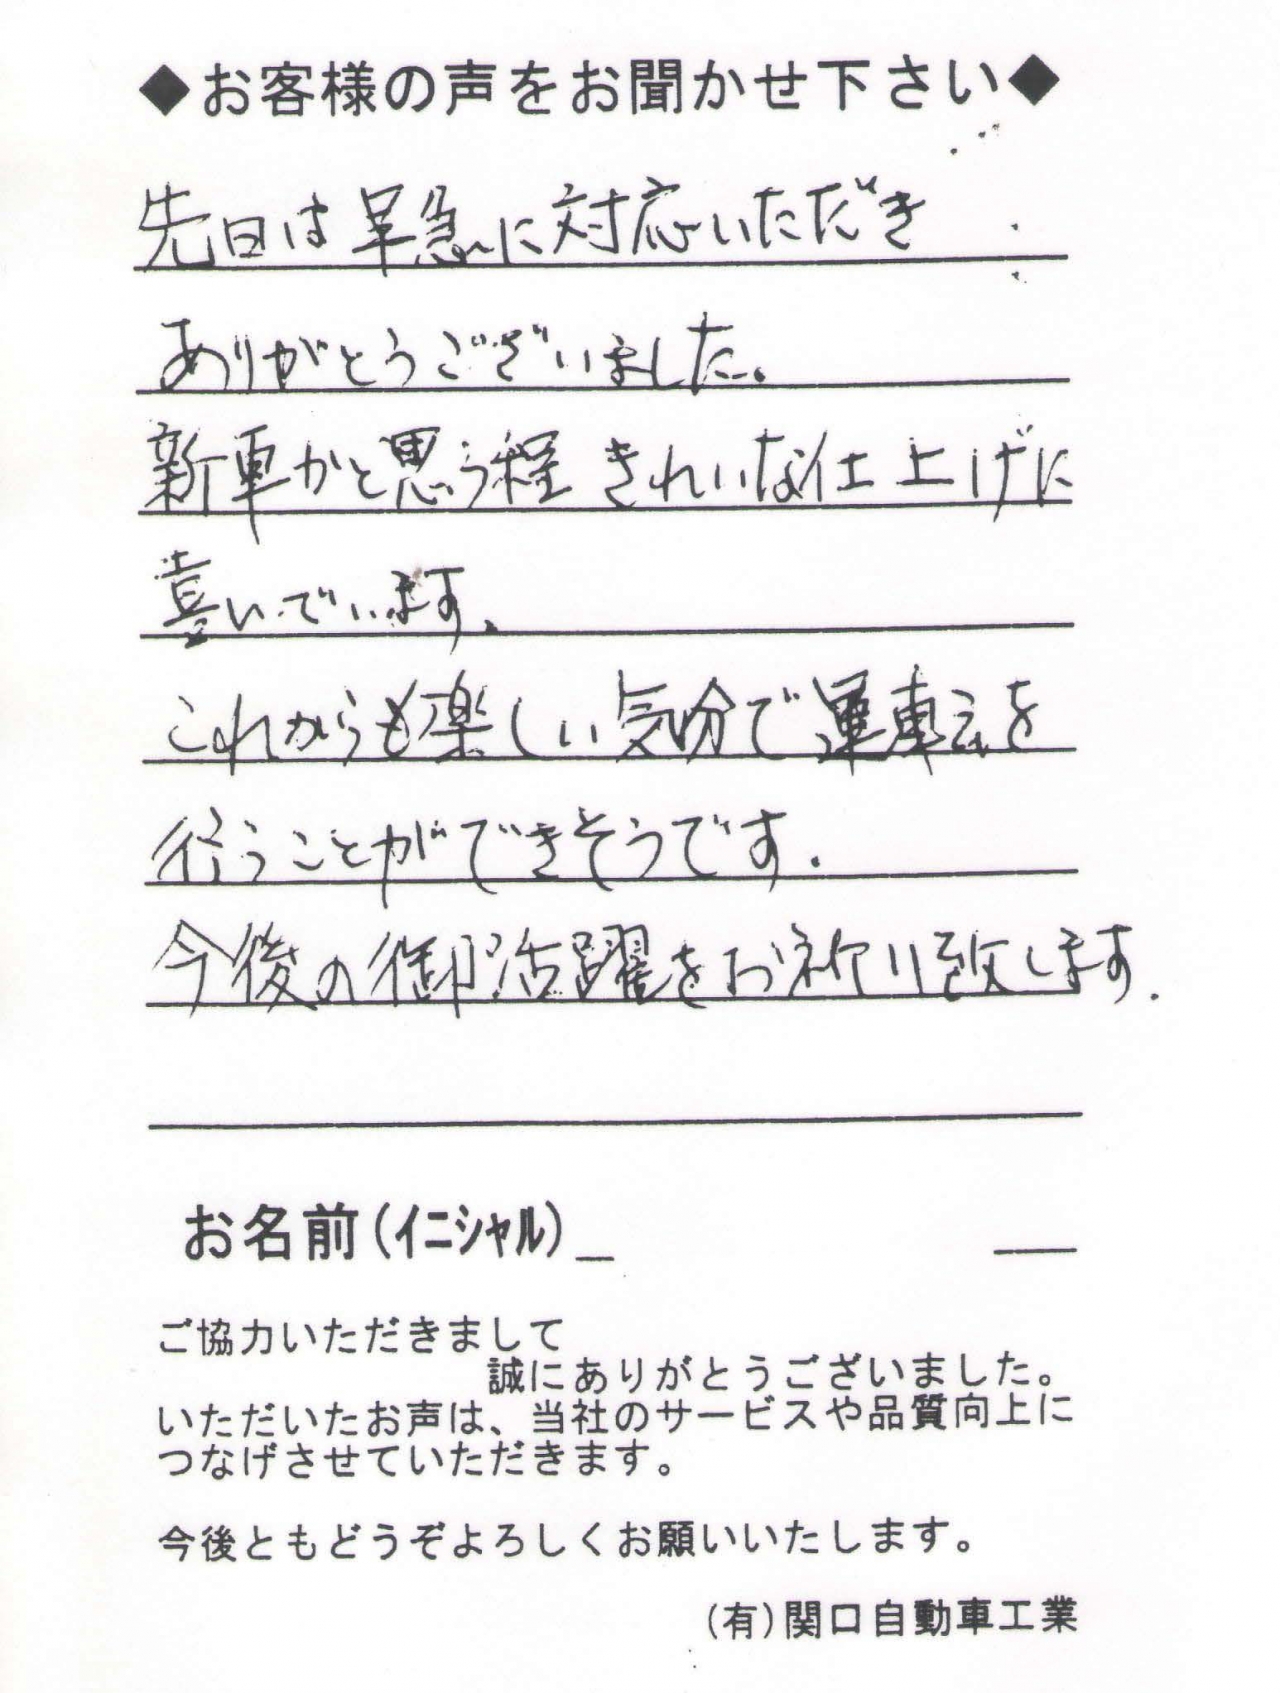 ◆お客様の声をお聞かせ下さい◆
先日は早急に対応いただき
ありがとうございました。
新車かと思う程きれいな仕上げに
喜いでいます。
これからも楽しい気分で運転を
行うことができそうです.
今後の御活躍をお祈り致します.
お名前(ｲﾆｼｬﾙ)
ご協力いただきまして
誠にありがとうございました。
いただいたお声は、当社のサービスや品質向上に
つなげさせていただきます。
今後ともどうぞよろしくお願いいたします。
(有)関口自動車工業